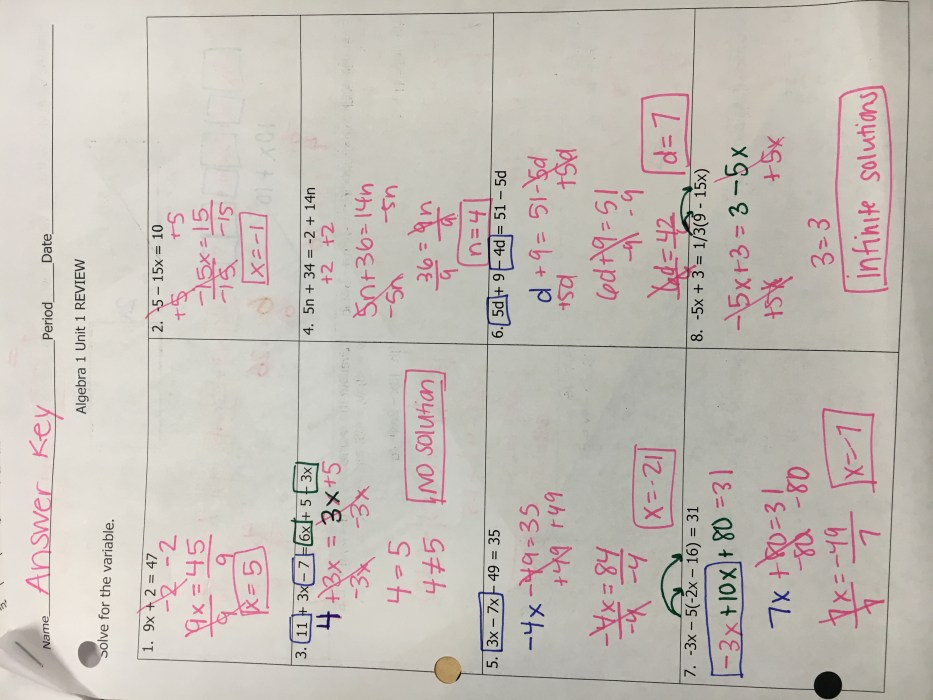 Name Answer Key Period Date
Algebra 1 Unit 1 REVIEW
Solve for the variable.
1. 9x + 2 = 47
-2 -2
9x = 45
9 9
x = 5
2. -5 – 15x = 10
+5 +5
-15x = 15
-15 -15
x = -1
3. 11 + 3x – 7 = 6x + 5 – 3x
4 + 3x = 3x + 5
-3x -3x
4 = 5
4 ≠ 5
No solution
4. 5n + 34 = -2 + 14n
+2 +2
5n + 36 = 14n
-5n -5n
36 = 9n
9 9
n = 4
5. 3x – 7x – 49 = 35
-4x - 49 = 35
+49 +49
-4x = 84
-4 -4
x = -21
6. 5d + 9 – 4d = 51 – 5d
d + 9 = 51 - 5d
+5d +5d
6d + 9 = 51
-9 -9
6d = 42
6 6
d = 7
7. -3x – 5(-2x – 16) = 31
-3x + 10x + 80 = 31
7x + 80 = 31
-80 -80
7x = -49
7 7
x = -7
8. -5x + 3 = 1/3(9 - 15x)
-5x + 3 = 3 - 5x
+5x +5x
3 = 3
infinite solutions